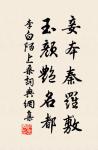 妾本秦羅敷
玉顏艷名都
李白陌上桑詞典網集